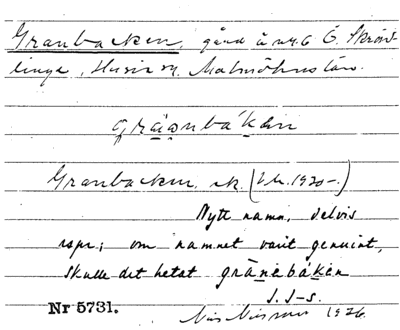 Granbacken, gård å nr 6 Ö. Skräv-
linge, Husie sn. Malmöhus län.
gräanbákən
Granbacken, ek. (
Nytt namn, delvis
rspr; om namnet varit genuint,
skulle det hetat gränebákən
J. S-s.
Nr 5731.
Nils Nilsson 1926